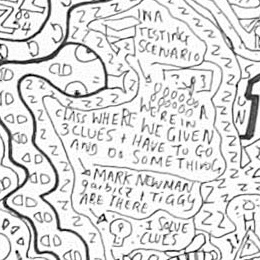 IN A
TESTING
SCENARIO
A
CLASS WHERE WEREIN
3 CLUES + WE GIVEN
HAVE TO GO
AND DO SOMETHING
MARK NEWMAN
garbict + TIGGY
ARE THERE
I SOLVE
CLUES